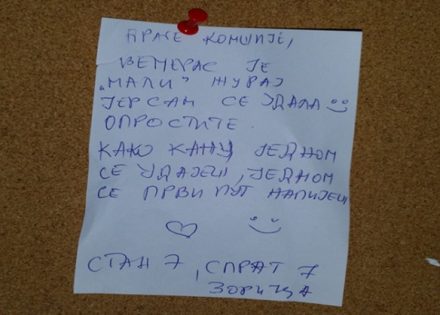 ДРАГЕ КОМШИЈЕ,
ВЕЧЕРАС ЈЕ
„МАЛИ" ЖУРАЈ
ЈЕР САМ СЕ УДАЛА
ОПРОСТИТЕ
КАКО КАЖУ ЈЕДНОМ
СЕ УДАЈЕШ, ЈЕДНОМ
СЕ ПРВИ ПУТ НАПИЈЕШ
СТАН 7, СПРАТ 7
ЗОРИЦА